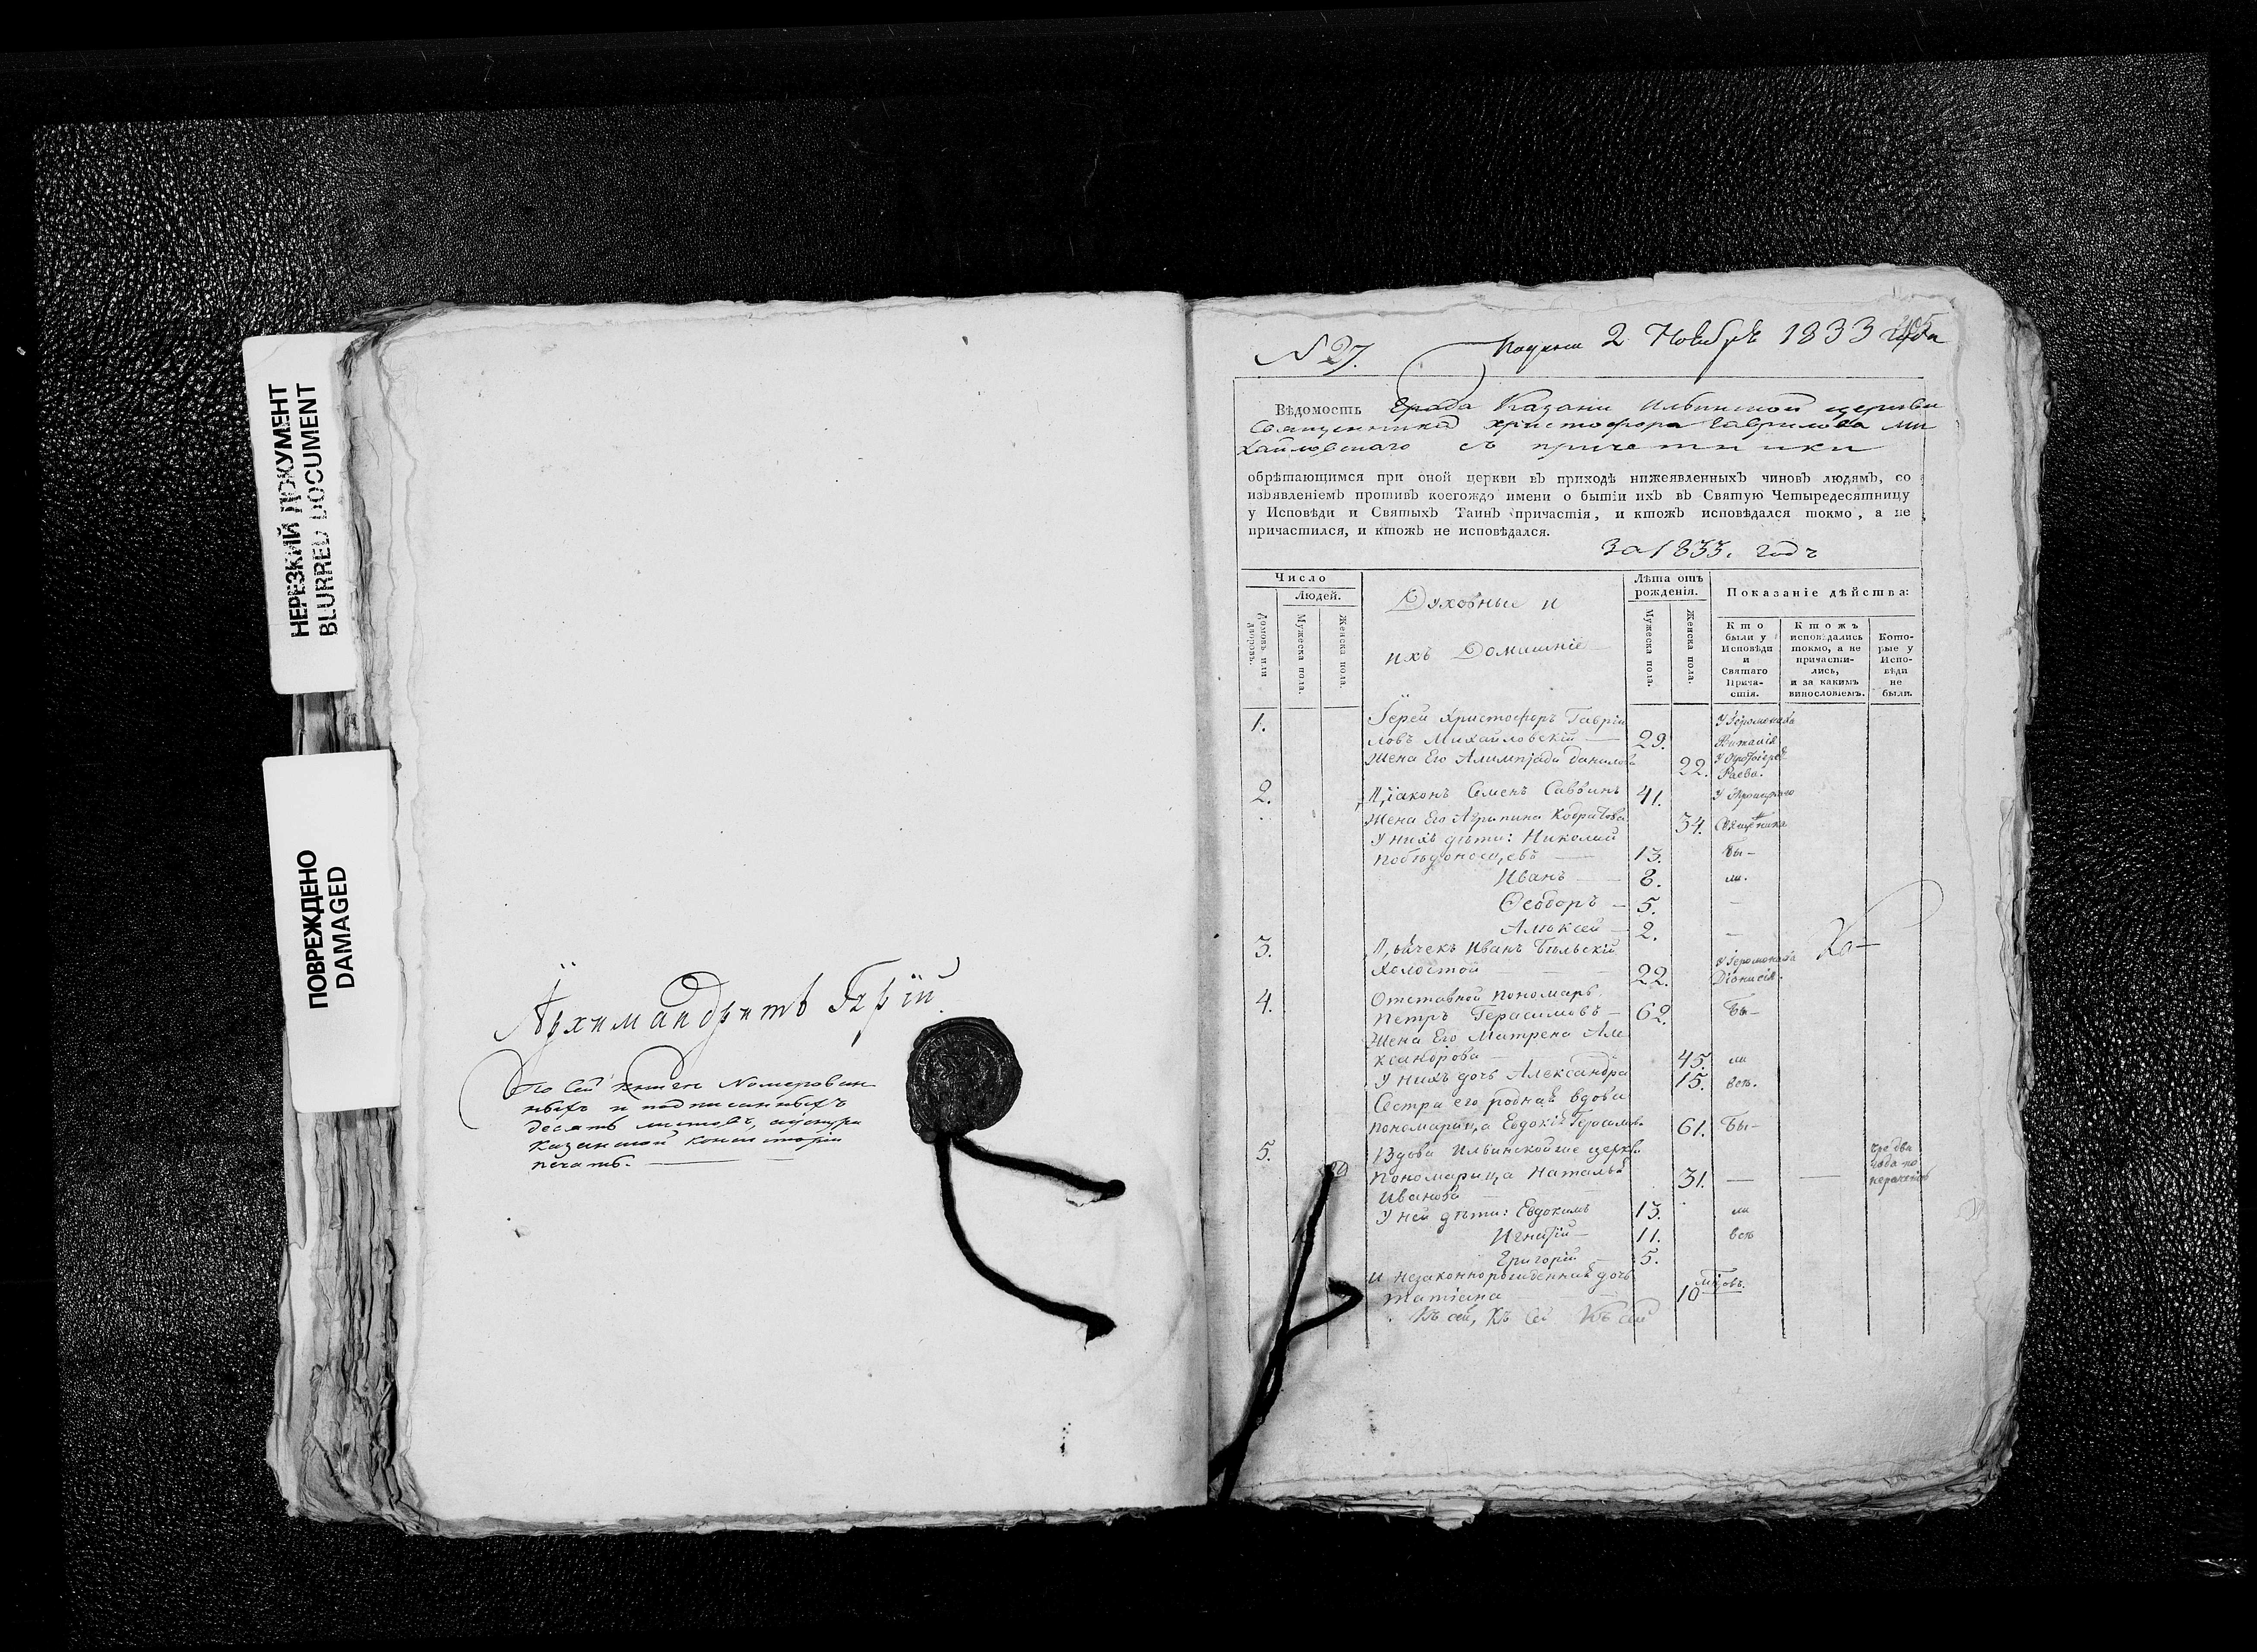 НЕРЕЗКИЙ ДОКУМЕНТ
BLURRED DOCUMENT
ПОВРЕЖДЕНО
DAMAGED
Архимандритъ Гурій
По сей книгѣ Номерован
ныхъ и подписанныхъ
десять листовъ, а у снура
Казанской консисторіи
печать.
N 27.
Подана 2 Ноебрѣ 1833 года
Вѣдомость Града Казани Ильинской церкви
Священника Христофора Гаврилова Ми
хайловскаго съ причетники
обрѣтающимся при оной церкви въ приходѣ нижеявленныхъ чиновъ людямъ, со
изъявленіемъ противъ коегождо имени о бытіи ихъ въ Святую Четыредесятницу
у Исповѣди и Святыхъ Таинъ причастія, и ктожъ исповѣдался токмо, а не
причастился, и ктожъ не исповѣдался.
За 1833. годъ
Число
Людей.
Домовъ или дворовъ.
Мужеска пола.
Женска пола.
Духовные и
ихъ Домашніе
Лѣта отъ рожденія.
Мужеска пола.
Женска пола.
Показаніе дѣйства:
Кто были у Исповѣди и Святаго Прича-стія.
Ктожъ исповѣдались токмо, а не причасти-лись, и за какимъ винословіемъ.
Кото-рые у Испо-вѣди не были.
1. Іерей Христофоръ Гаврии У Іеромонаха
ловъ Михайловскій 29.
Жена Его Алимпіада Данилова У Протоіерея
22. Раева.
2. Діаконъ Семенъ Саввинъ 41. У
Жена Его Агрипина 34. Священника
У нихъ дѣти: Николай
Побѣдоносцевъ 13. Бы-
Иванъ 8. ли.
Ѳеодоръ 5. -
Алѣксей 2. -
3. Дьячекъ Иванъ Бѣльскій У Іеромонаха
Холостой 22. Діонисія.
4. Отставной пономарь
Петръ Герасимовъ 62. Бы-
Жена Его Матрена Але
ксандрова 45. ли
У нихъ дочь Александра 15. всѣ.
Сестра его родная вдова
пономарица Евдокія Герасимов. 61. Бы-
5. Вдова Ильинской же церкви
Пономарица Наталья 31. — —
Иванова
У ней дѣти: Евдокимъ 13. ли
Игнатій 11. всѣ
Григорій 5.
и незаконнорожденная дочь
Татіана 10
Къ сей, Къ Сей Къ сей